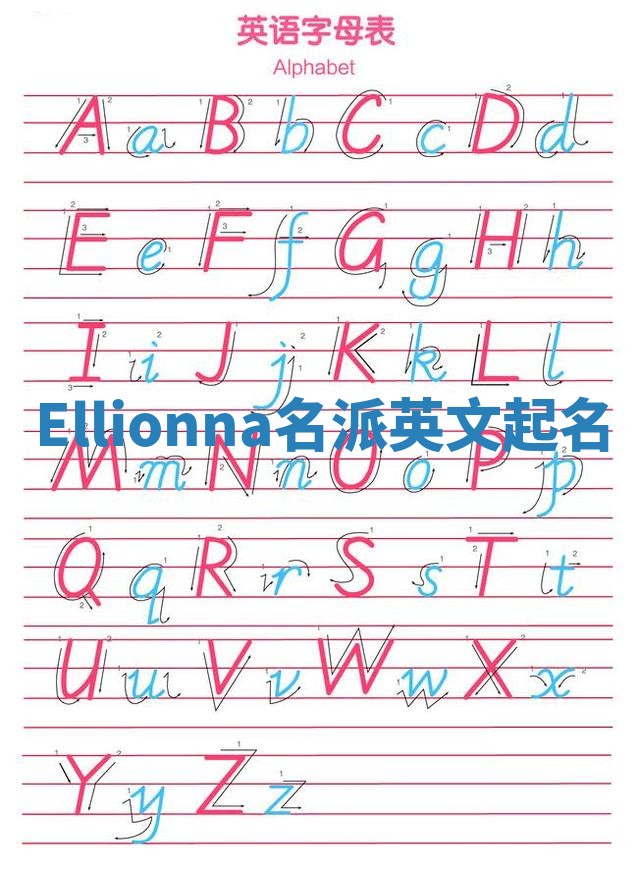 英语字母表
Alphabet
A a B b C c D d
E e F f G g H h
I i J j K k L l
Ellionna名派英文起名
M m N n O o P p
Q q R r S s T t
U u V v W w X x
Y y Z z